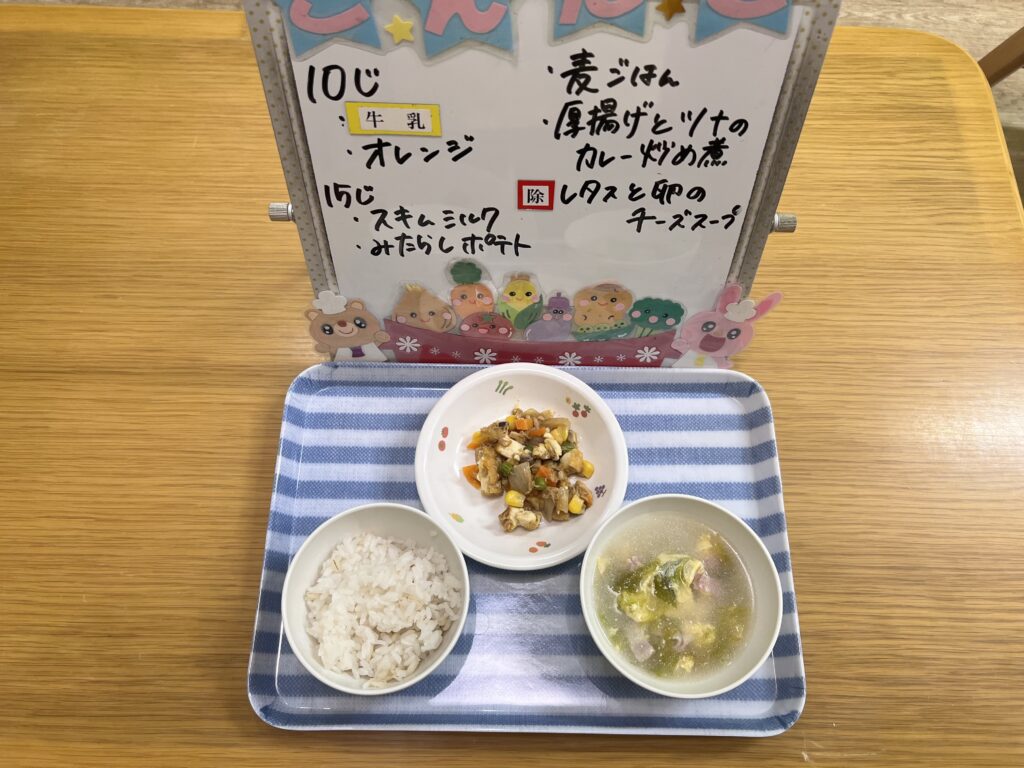 こんだて
10じ
・牛乳
・オレンジ
15じ
・スキムミルク
・みたらしポテト
・麦ごはん
・厚揚げとツナの
カレー炒め煮
除 レタスと卵の
チーズスープ